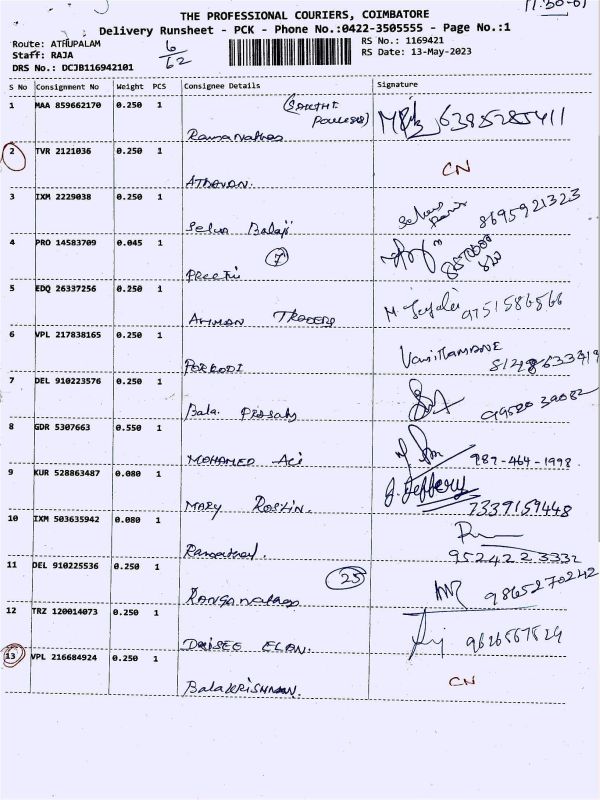 11.30-01
THE PROFESSIONAL COURIERS, COIMBATORE
Delivery Runsheet - PCK - Phone No.:0422-3505555 - Page No.:1
Route: ATHUPALAM
Staff: RAJA
DRS No.: DCJB116942101
6/62
RS No.: 1169421
RS Date: 13-May-2023
S No Consignment No Weight PCS Consignee Details Signature
1 MAA 859662170 0.250 1 (SAKTHI 6385285411
Ramanathan
2 TVR 2121036 0.250 1 CN
ATHAVAN.
3 IXM 2229038 0.250 1 8695921323
Selva Balaji
4 PRO 14583709 0.045 1 7
Preethi
5 EDQ 26337256 0.250 1 9751586566
AMMAN TRADERS
6 VPL 217838165 0.250 1
PORKODI
7 DEL 910223576 0.250 1 9952039082
Bala. Prasath
8 GDR 5307663 0.550 1 987-464-1998
MOHAMED Ali
9 KUR 528863487 0.080 1 J. Jeffery 7339159448
MARY ROSLIN.
10 IXM 503635942 0.080 1 9524223332
11 DEL 910225536 0.250 1 25 9865270242
RANGANATHAN
12 TRZ 120014073 0.250 1
DAISEE ELAN.
13 VPL 216684924 0.250 1 CN
BalaKRISHNAN.